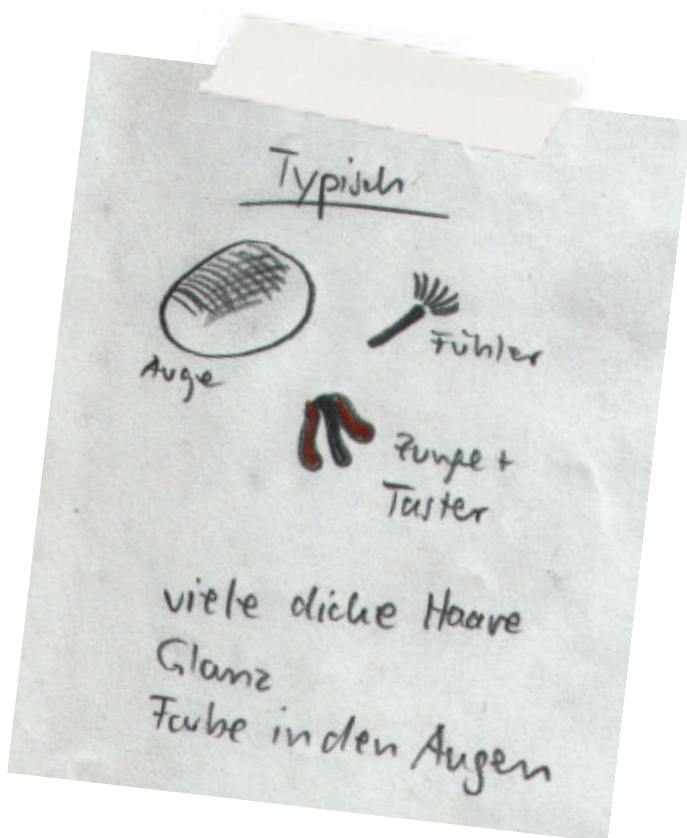 Typisch
Auge
Fühler
Zunge +
Taster
viele dicke Haare
Glanz
Farbe in den Augen